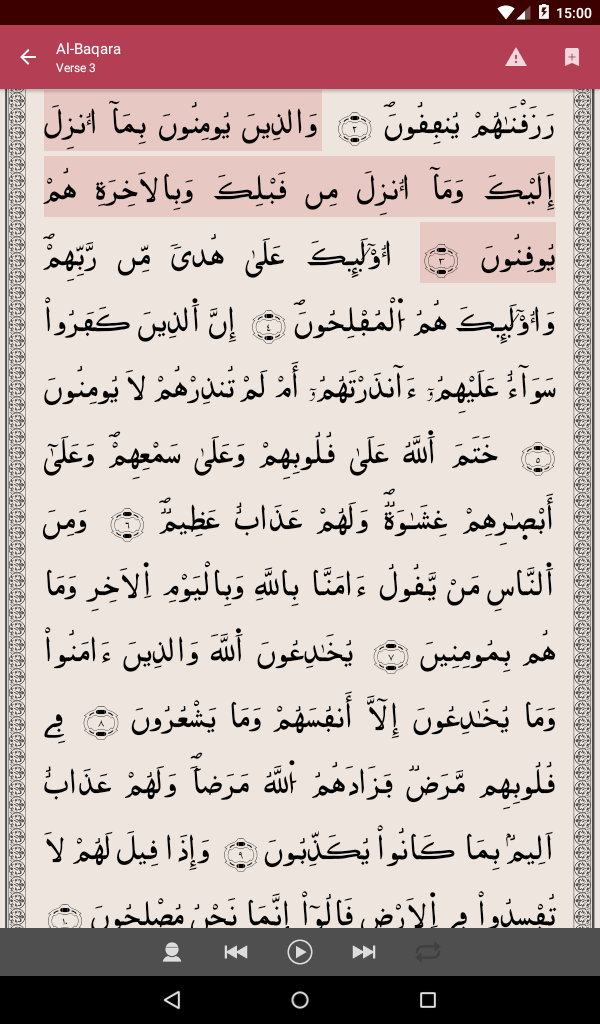 15:00
Al-Baqara
Verse 3
رَزَقْنَٰهُمْ يُنفِقُونَۖ ٢ وَالذِينَ يُومِنُونَ بِمَآ أُنزِلَ
إِلَيْكَ وَمَآ أُنزِلَ مِن قَبْلِكَ وَبِالَاخِرَةِ هُمْ
يُوقِنُونَ ٣ أُوْلَٰٓئِكَ عَلَىٰ هُدىٗ مِّن رَّبِّهِمْۖ
وَأُوْلَٰٓئِكَ هُمُ اُ۬لْمُفْلِحُونَۖ ٤ إِنَّ اَ۬لذِينَ كَفَرُواْ
سَوَآءٌ عَلَيْهِمُۥٓ ءَآنذَرْتَهُمُۥٓ أَمْ لَمْ تُنذِرْهُمْ لَا يُومِنُونَ
٥ خَتَمَ اَ۬للَّهُ عَلَىٰ قُلُوبِهِمْ وَعَلَىٰ سَمْعِهِمْۖ وَعَلَىٰٓ
أَبْصٰ۪رِهِمْ غِشَٰوَةٞۖ وَلَهُمْ عَذَابٌ عَظِيمٞۖ ٦ وَمِنَ
اَ۬لنَّاسِ مَنْ يَّقُولُ ءَامَنَّا بِاللَّهِ وَبِالْيَوْمِ اِ۬لَاخِرِ وَمَا
هُم بِمُومِنِينَ ٧ يُخَٰدِعُونَ اَ۬للَّهَ وَالذِينَ ءَامَنُواْ
وَمَا يُخَٰدِعُونَ إِلَّآ أَنفُسَهُمْ وَمَا يَشْعُرُونَ ٨ فِے
قُلُوبِهِم مَّرَضٞ فَزَادَهُمُ اُ۬للَّهُ مَرَضاٗۖ وَلَهُمْ عَذَابٌ
اَلِيمُۢ بِمَا كَانُواْ يُكَذِّبُونَ ٩ وَإِذَا قِيلَ لَهُمْ لَا
تُفْسِدُواْ فِے اِ۬لَارْضِ قَالُوٓاْ إِنَّمَا نَحْنُ مُصْلِحُونَ ١٠